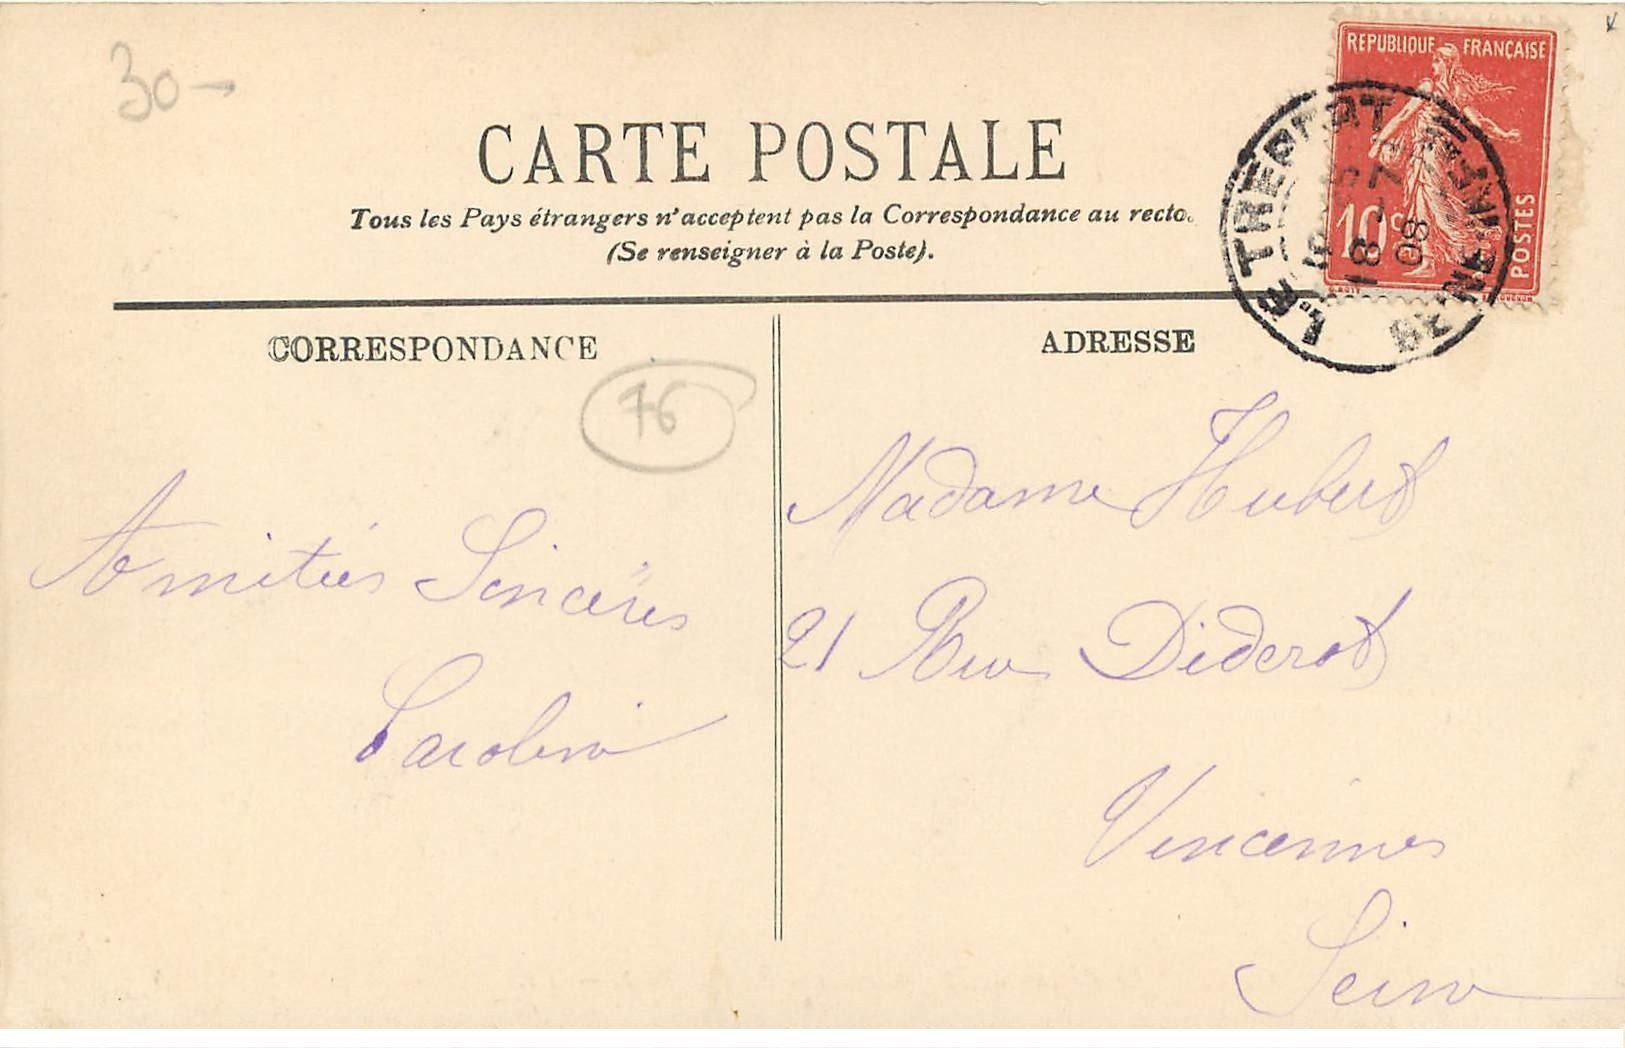 30-
REPUBLIQUE FRANÇAISE
10 c
POSTES
LE TREPORT
SEINE-INFRE
18 -7
08
CARTE POSTALE
Tous les Pays étrangers n'acceptent pas la Correspondance au recto.
(Se renseigner à la Poste).
CORRESPONDANCE
ADRESSE
76
Amitiés Sincères
Madame Hubert
21 Rue Diderot
Vincennes
Seine